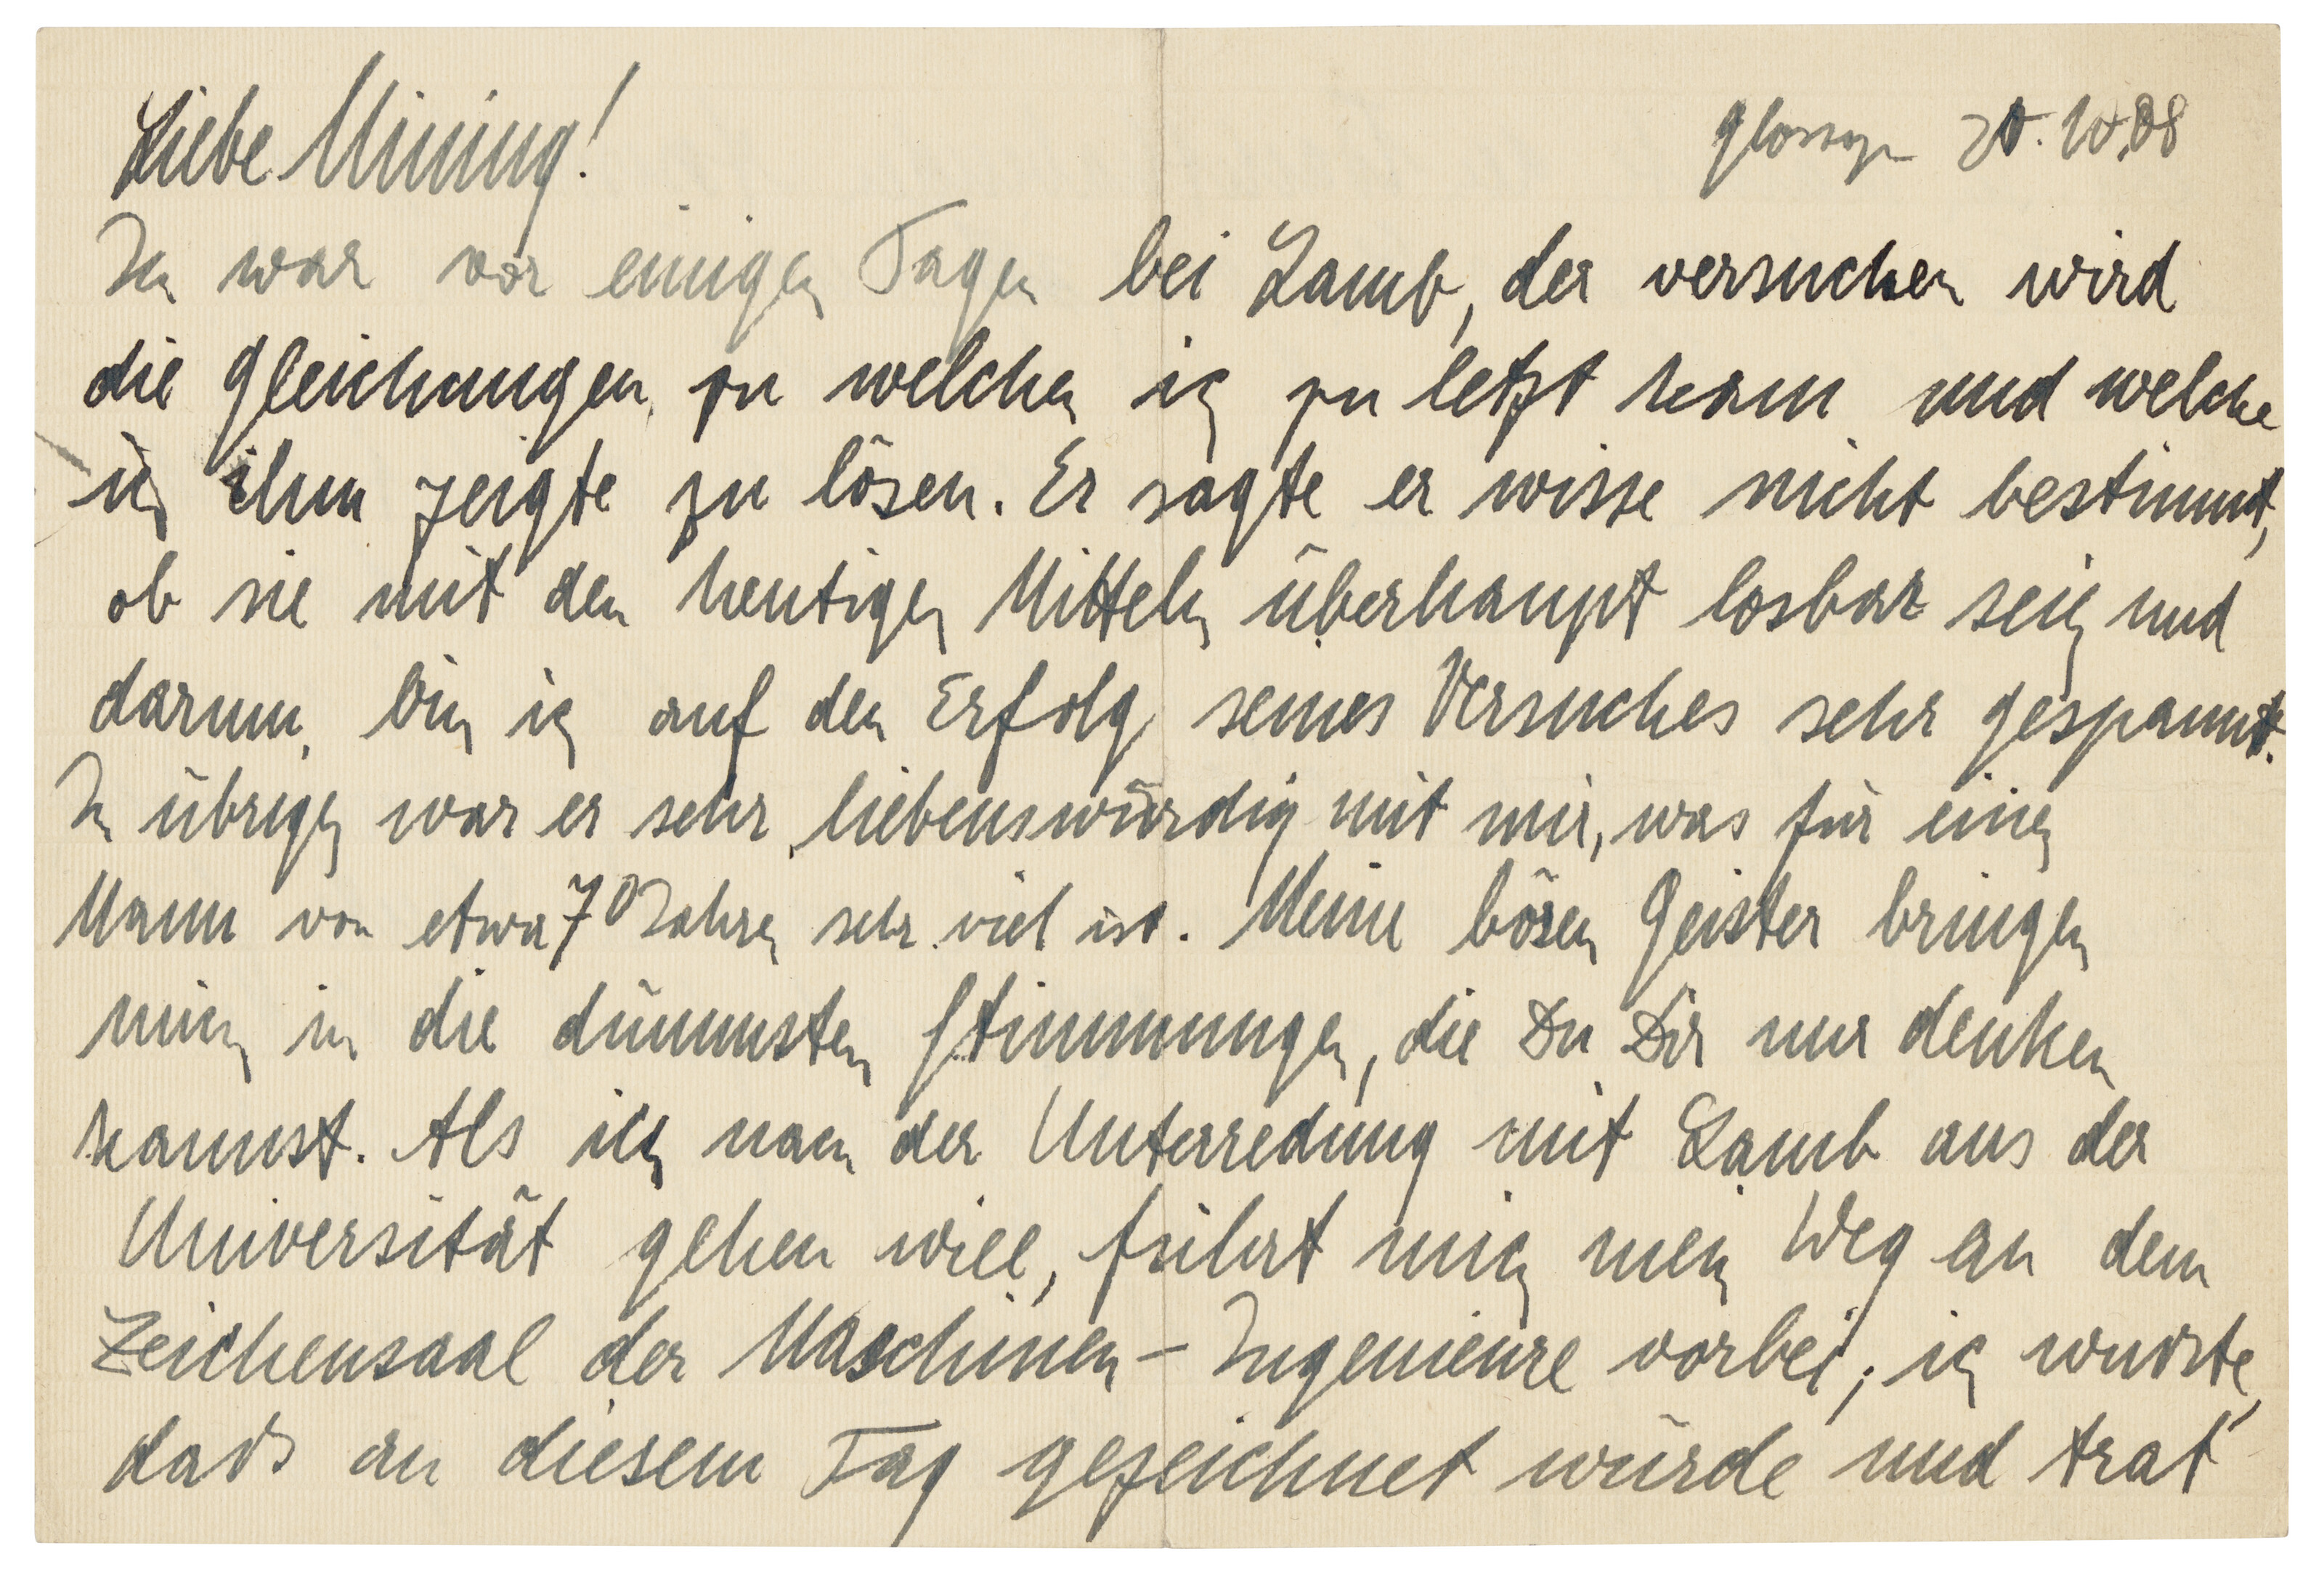 Liebe Mining!
Glossop 20.10.08
Ich war vor einigen Tagen bei Lamb, der versuchen wird
die Gleichungen zu welchen ich zu letzt kam und welche
ich ihm zeigte zu lösen. Er sagte er wisse nicht bestimmt,
ob sie mit den heutigen Mitteln überhaupt losbar seien und
darum bin ich auf den Erfolg seines Versuches sehr gespannt.
Im übrigen war er sehr liebenswürdig mit mir, was für einen
Mann von etwa 70 Jahren sehr viel ist. Meine bösen Geister bringen
mich in die dümmsten Stimmungen, die Du Dir nur denken
kannst. Als ich nach der Unterredung mit Lamb aus der
Universität gehen will, führt mich mein Weg an dem
Zeichensaal der Maschinen-Ingenieure vorbei; ich wußte,
daß an diesem Tag gezeichnet würde und trat